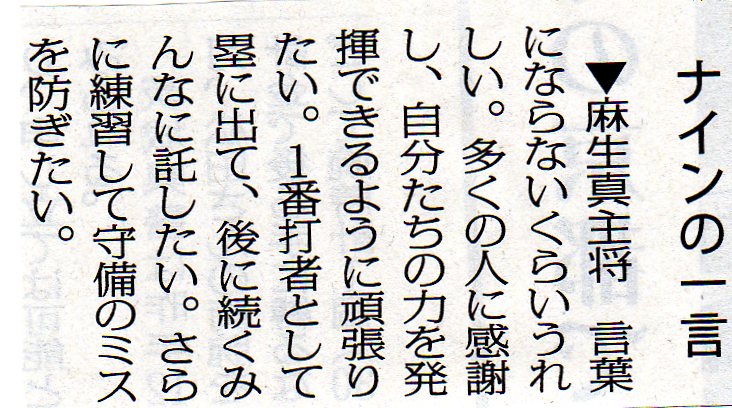 ナインの一言
▼麻生真主将　言葉
にならないくらいうれ
しい。多くの人に感謝
し、自分たちの力を発
揮できるように頑張り
たい。１番打者として
塁に出て、後に続くみ
んなに託したい。さら
に練習して守備のミス
を防ぎたい。